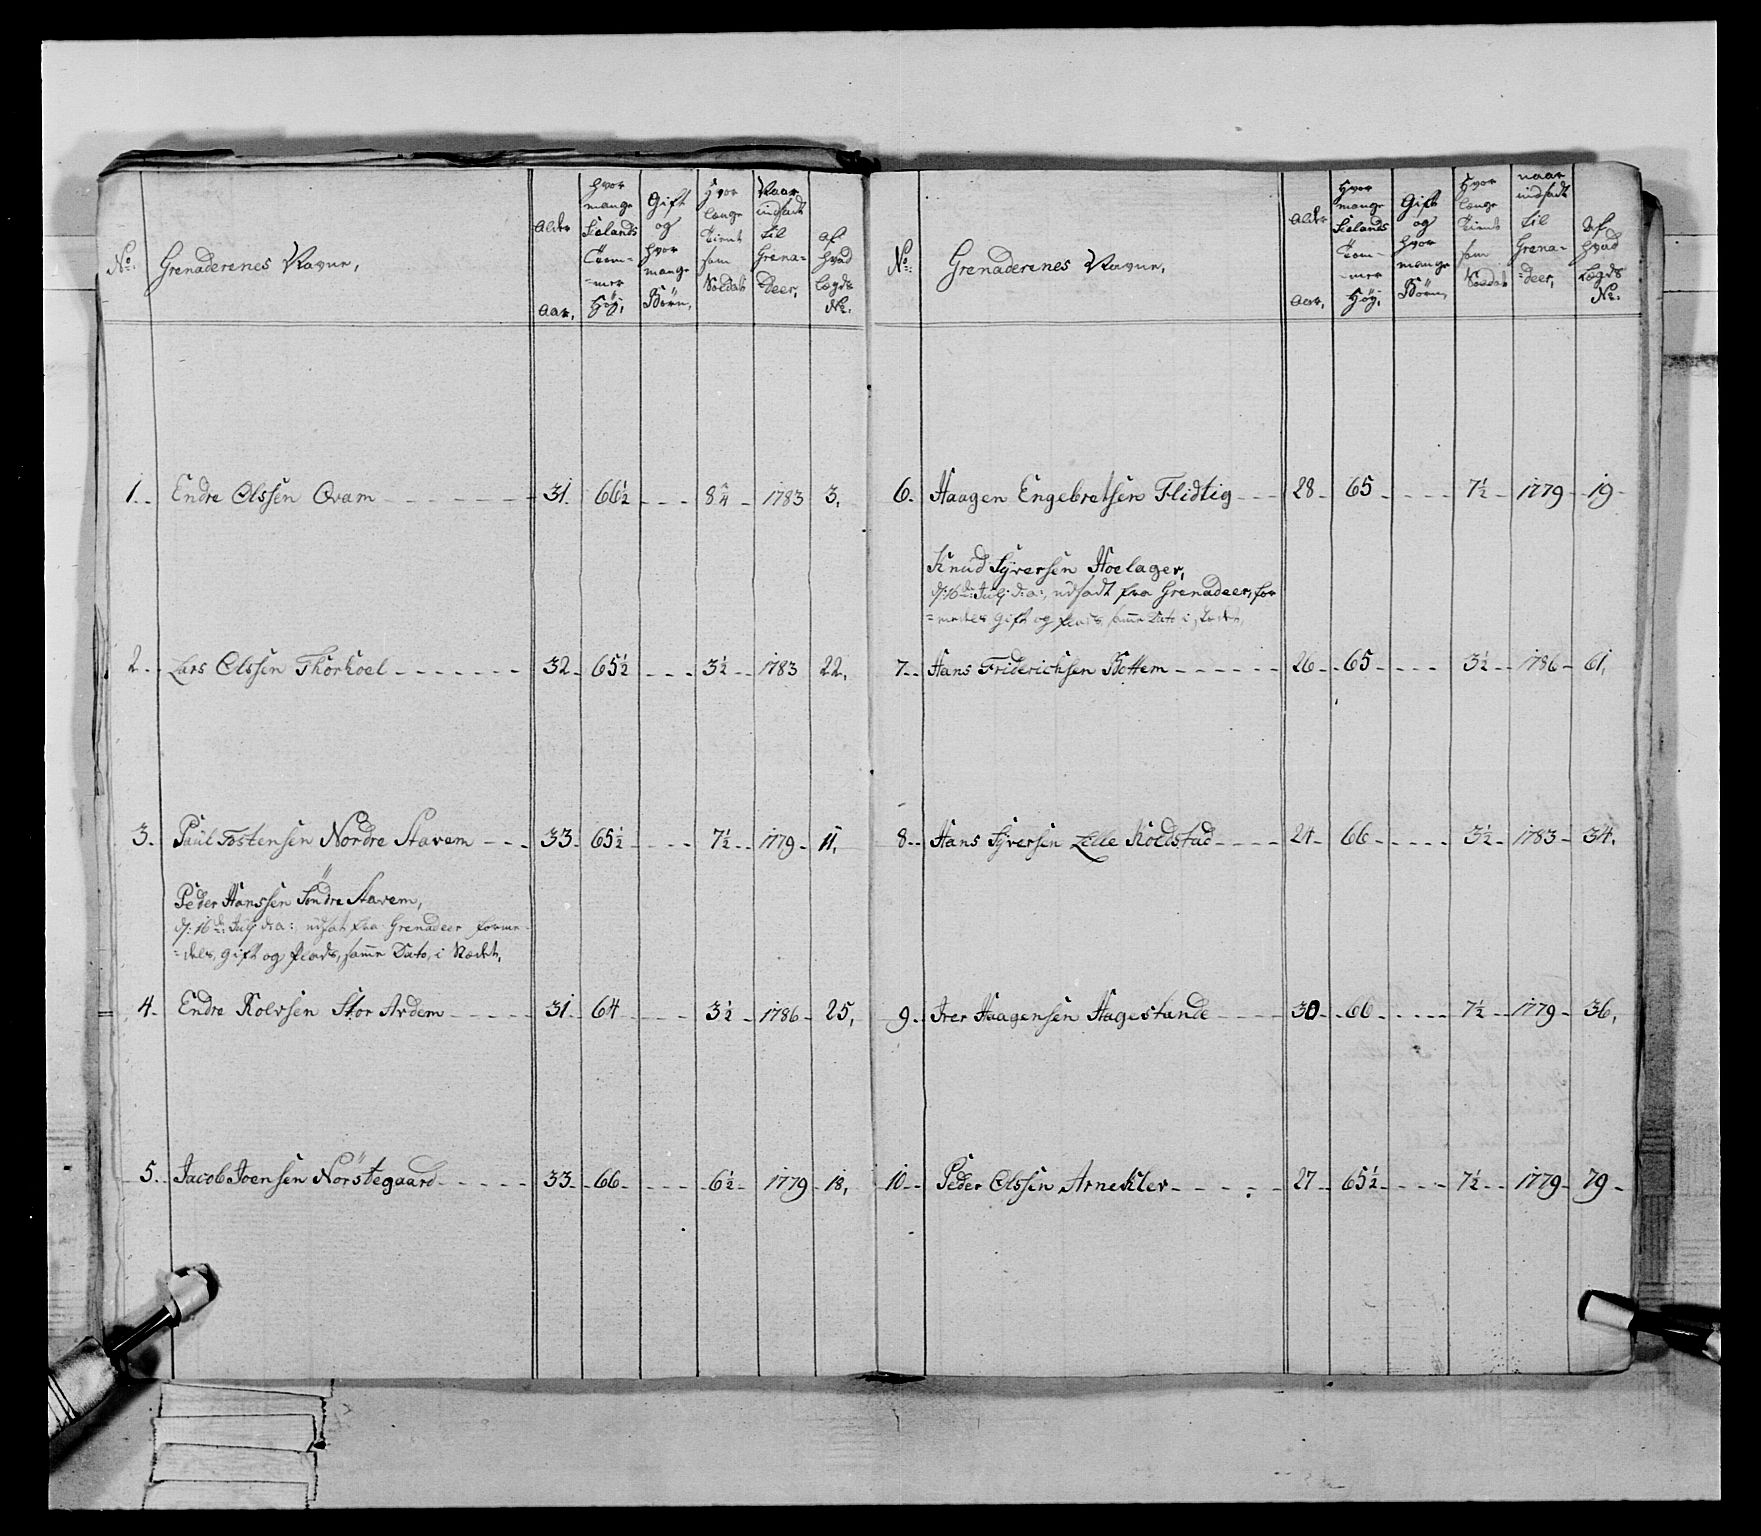 No:
Grenaderenes Navne,
Alder
Aar,
hvor
mange
Sielands
Tom-
=mer
Høy,
Gift
og
hvor
mange
Börn,
Hvor
længe
tient
som
Soldat
Naar
indsadt
til
Grena=
=deer,
af
hvad
Lægds
No:
1. Endre Olssen Qvam 31. 66½ 1783 3,
2. Lars Olssen Thorkoel 32 65½ 3½ 1783 22,
3. Paul Tostensen Nordre Stavem 33 65½ 7½ 1779 11,
Peder Hanssen Söndre Stavem,
d: 16de Julj d:a:, udsat fra Grenadeer forme-
=dels, gift og Plads, samme Dato, i Stædet,
4. Endre Rolvsen Stor Ardem 31 64 3½ 1786 25,
5. Jacob Joensen Nörstegaard 33 66 6½ 1779 18,
No:
Grenaderenes Navne,
Alder
Aar,
Hvor
mange
Sielands
Tom-
=mer
Høy,
Gift
og
hvor
mange
Börn,
Hvor
længe
tient
som
Soldat
naar
indsadt
til
Grena=
=deer,
Af
hvad
Lægds
No:
6. Haagen Engebretsen Flidtig 28 65 7½ 1779 19
Knud Syversen Hoelager,
d: 16de Julj d:a:, udsadt fra Grenadeer, for
=medels gift og Plads, samme Dato i Stædet,
7. Hans Friderichsen Bottem 26 65 3½ 1786 61,
8. Hans Syversen Lille Koldstad 24 66 3½ 1783 34.
9. Iver Haagensen Hagestande 30 66 7½ 1779 36,
10. Peder Olssen Arnekler 27 65½ 7½ 1779 79